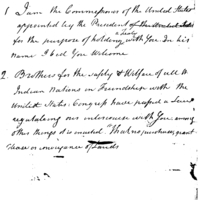 1 I am the Commissioner of the United States
appointed by the President of the United States
for the purpose of holding a Treaty with You. In his
name I bid You Welcome
2 Brothers for the safety & Welfare of all the
Indian Nations in Friendship with the
United States. Congress have passed a Law
regulating our intercourse with You among
other things it is enacted "That no purchase, grant
lease or conveyance of Lands